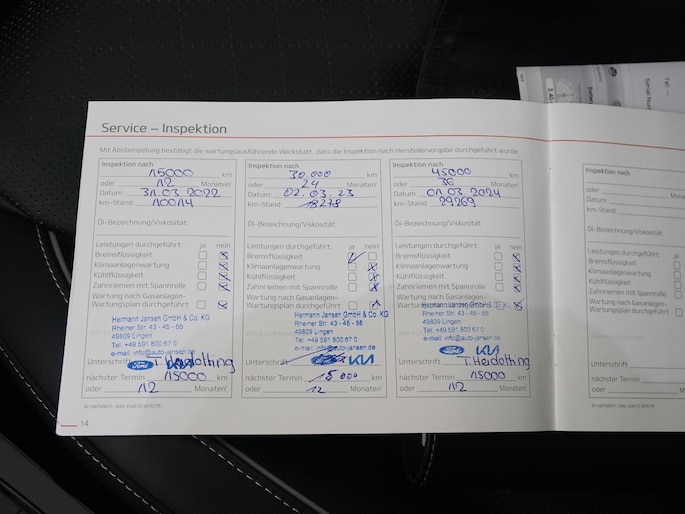 Service – Inspektion
Mit Abstempelung bestätigt die wartungsausführende Werkstatt, dass die Inspektion nach Herstellervorgabe durchgeführt wurde.
Inspektion nach
15000 km
oder 12 Monaten¹
Datum: 31.03.2022
km-Stand: 10014
Öl-Bezeichnung/Viskosität:
Leistungen durchgeführt: ja nein
Bremsflüssigkeit
Klimaanlagenwartung
Kühlflüssigkeit
Zahnriemen mit Spannrolle
Wartung nach Gasanlagen-
Wartungsplan durchgeführt
Hermann Jansen GmbH & Co. KG
Rheiner Str. 43 - 45 - 55
49809 Lingen
Tel: +49 591 800 67 0
e-mail: info@auto-jansen.de
Unterschrift Ford T. Heidotting
nächster Termin 15000 km
oder 12 Monaten¹
Inspektion nach
30.000 km
oder 24 Monaten¹
Datum: 02.03.23
km-Stand: 18278
Öl-Bezeichnung/Viskosität:
Leistungen durchgeführt: ja nein
Bremsflüssigkeit
Klimaanlagenwartung
Kühlflüssigkeit
Zahnriemen mit Spannrolle
Wartung nach Gasanlagen-
Wartungsplan durchgeführt
Hermann Jansen GmbH & Co. KG
Rheiner Str. 43 - 45 - 55
49809 Lingen
Tel: +49 591 800 67 0
e-mail: info@auto-jansen.de
Unterschrift KIA
nächster Termin 15000 km
oder 12 Monaten¹
Inspektion nach
45000 km
oder 36 Monaten¹
Datum: 01.03.2024
km-Stand: 29269
Öl-Bezeichnung/Viskosität:
Leistungen durchgeführt: ja nein
Bremsflüssigkeit
Klimaanlagenwartung
Kühlflüssigkeit
Zahnriemen mit Spannrolle
Wartung nach Gasanlagen-
Wartungsplan durchgeführt
Hermann Jansen GmbH & Co. KG
Rheiner Str. 43 - 45 - 55
49809 Lingen
Tel: +49 591 800 67 0
e-mail: info@auto-jansen.de
Ford KIA
Unterschrift T. Heidotting
nächster Termin 15000 km
oder 12 Monaten¹
¹Je nachdem, was zuerst eintritt.
14
Inspektion nach
oder
Datum:
km-Stand:
Öl-Bezeichnung/Viskosität:
Leistungen durchgeführt:
Bremsflüssigkeit
Klimaanlagenwartung
Kühlflüssigkeit
Zahnriemen mit Spannrolle
Wartung nach Gasanlagen-
Wartungsplan durchgeführt
Unterschrift
nächster Termin
oder
¹Je nachdem, was zuerst eintritt.
Tel.:
Serial Nu